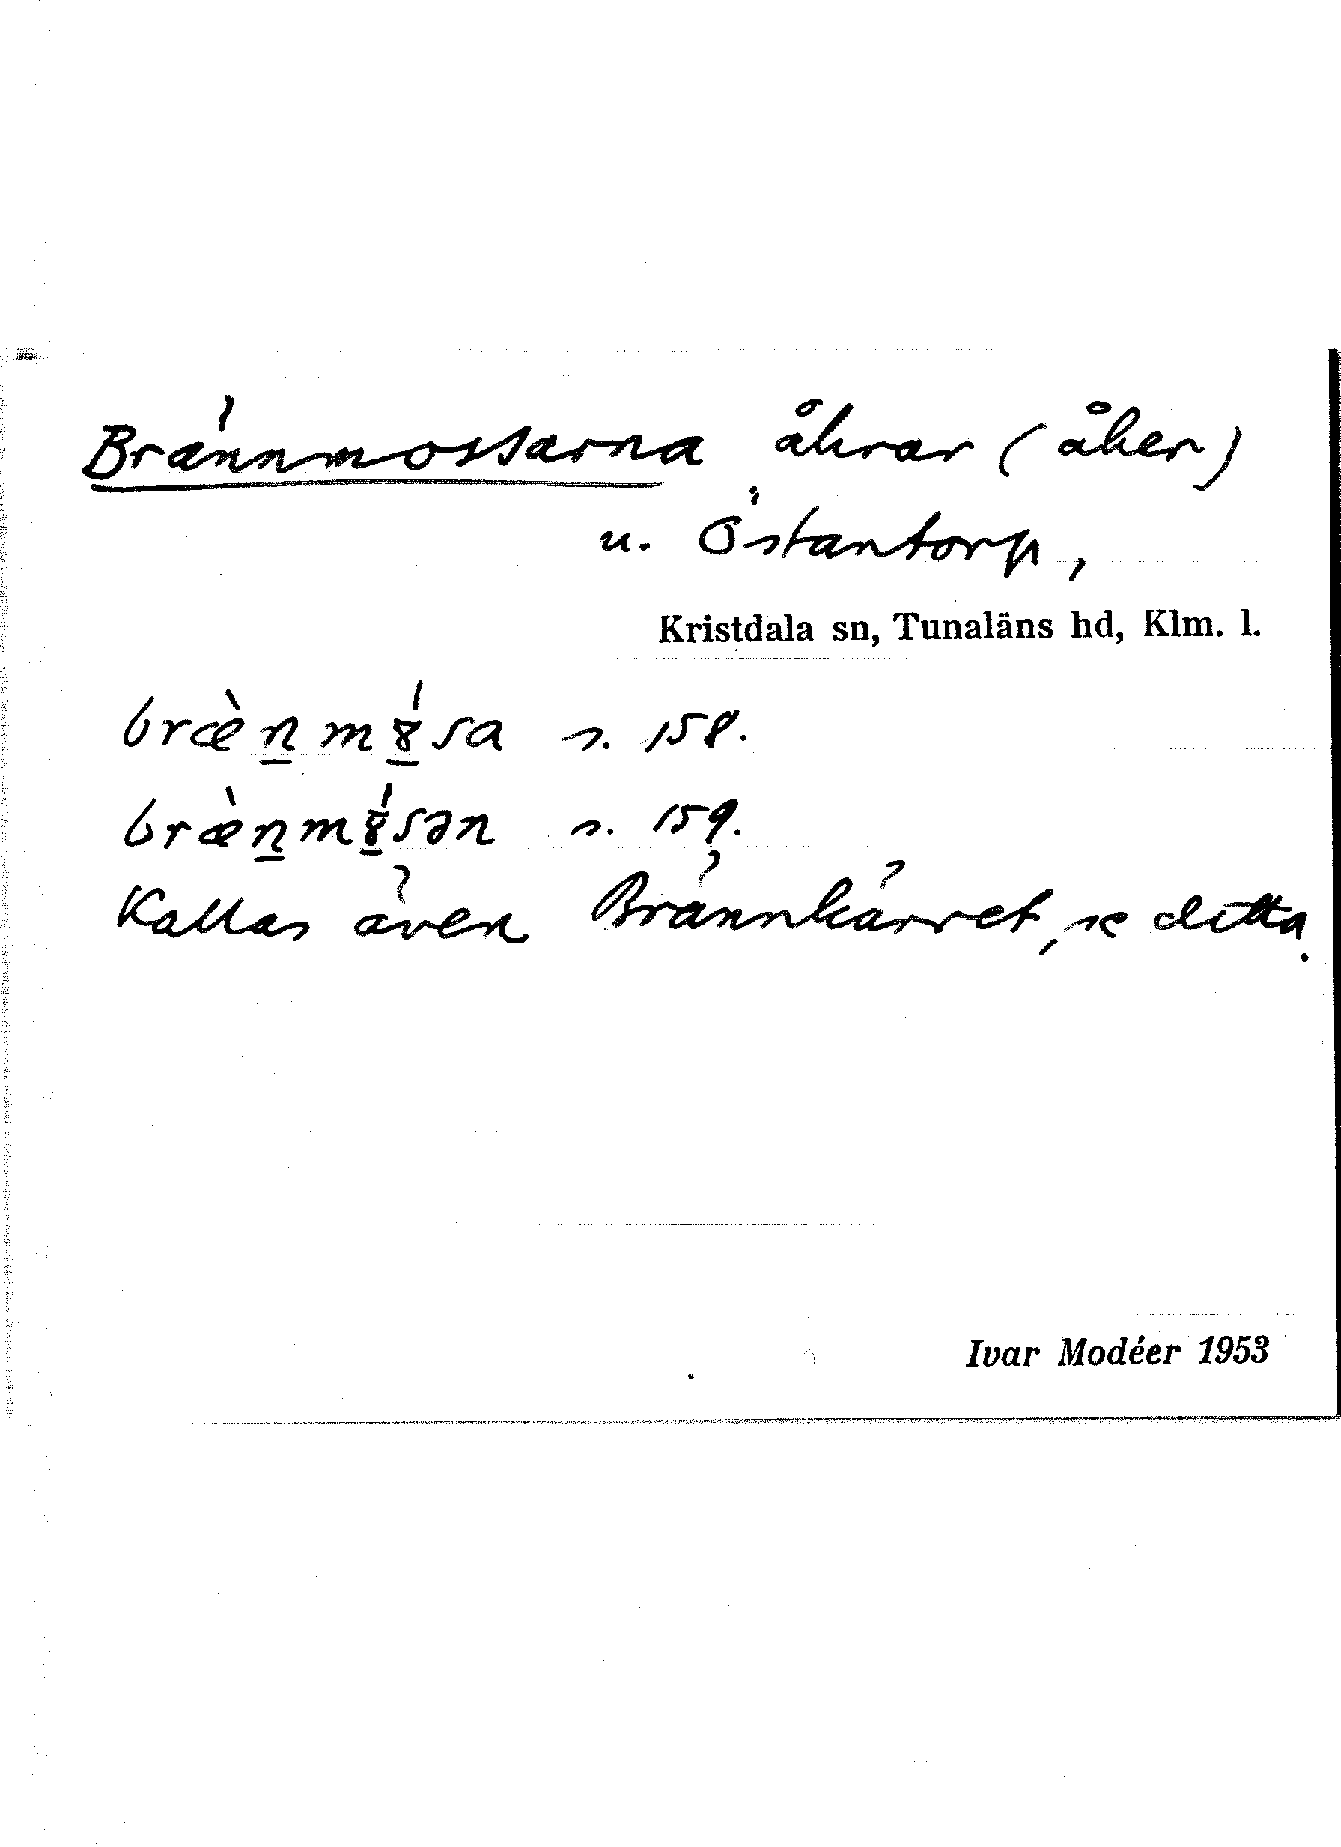 Brännmossarna åkrar (åker)
u. Östantorp,
Kristdala sn, Tunaläns hd, Klm. l.
bræ̀n̲m8̲́sa s. 158.
bræ̀n̲m8̲́sən s. 159.
Kallas även Brännkärret, se detta.
Ivar Modéer 1953